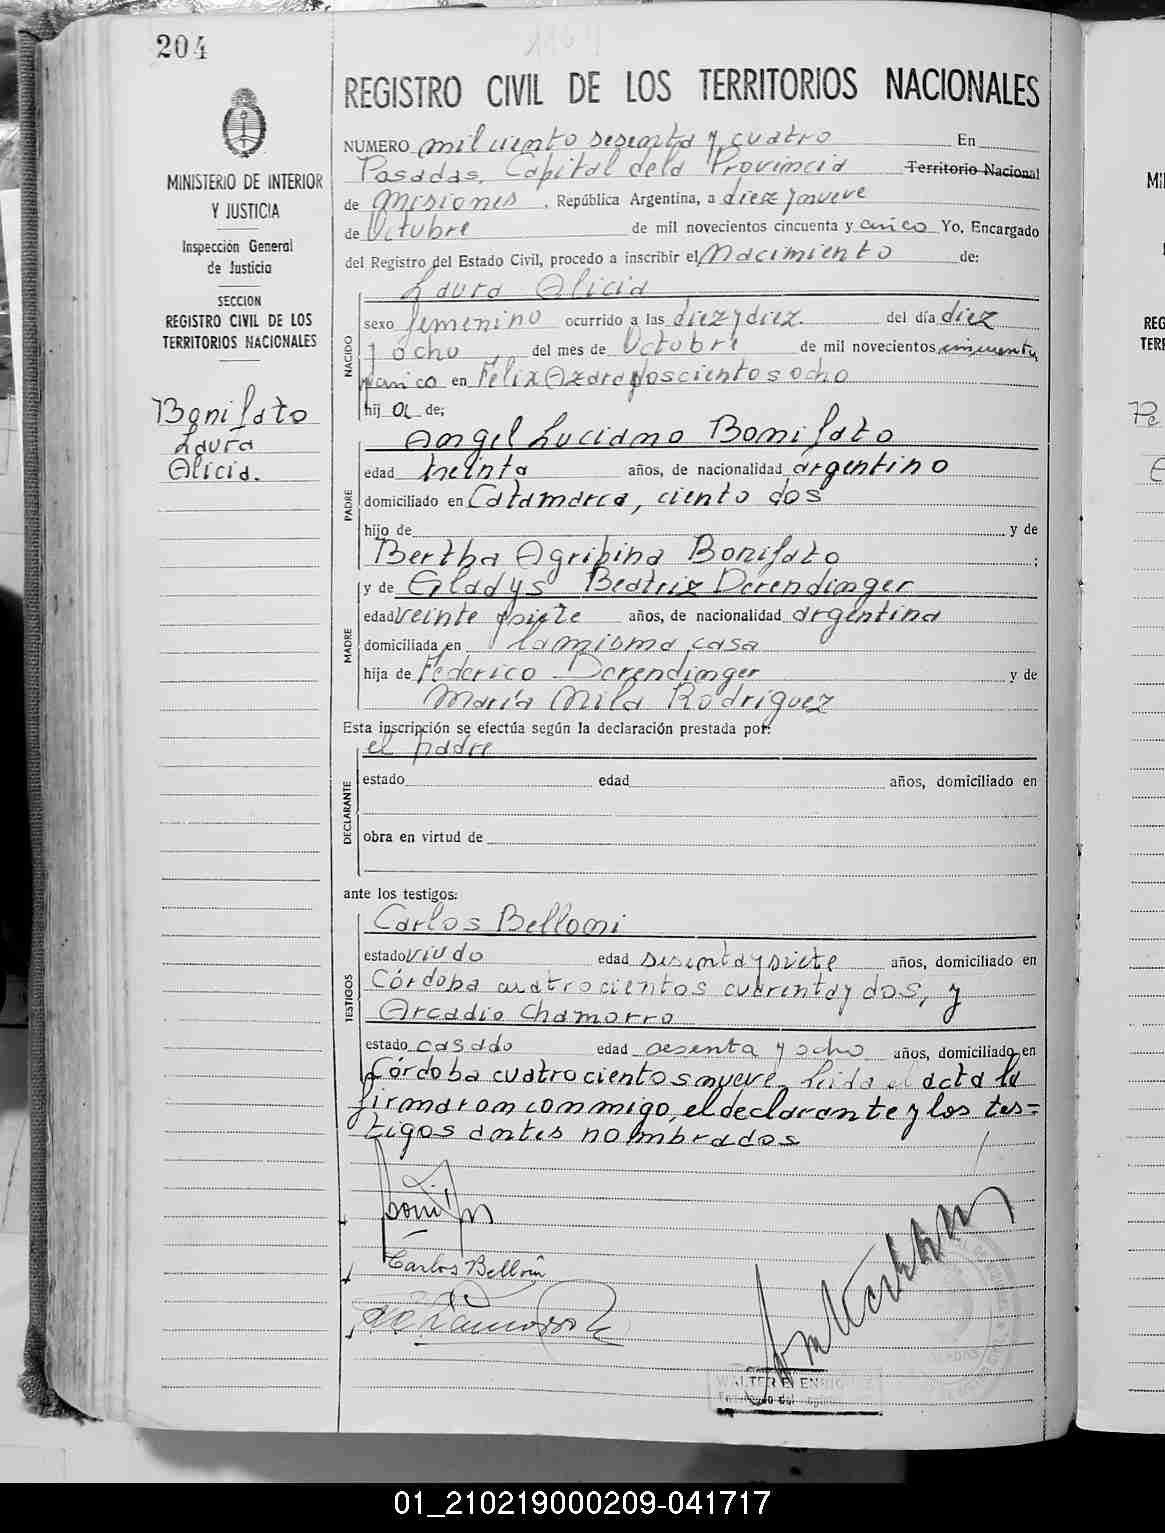 204
1164
MINISTERIO DE INTERIOR
Y JUSTICIA
Inspección General
de Justicia
SECCION
REGISTRO CIVIL DE LOS
TERRITORIOS NACIONALES
Bonifato
Laura
Alicia.
REGISTRO CIVIL DE LOS TERRITORIOS NACIONALES
NUMERO mil ciento sesenta y cuatro En
Posadas, Capital de la Provincia Territorio Nacional
de Misiones, República Argentina, a diez y nueve
de Octubre de mil novecientos cincuenta y cinco Yo, Encargado
del Registro del Estado Civil, procedo a inscribir el Nacimiento de:
Laura Alicia
NACIDO
sexo femenino ocurrido a las diez y diez. del día diez
y ocho del mes de Octubre de mil novecientos cincuenta
y cinco en Felix Azara doscientos ocho
hij a de;
Angel Luciano Bonifato
PADRE
edad treinta años, de nacionalidad argentino
domiciliado en Catamarca, ciento dos
hijo de y de
Bertha Agripina Bonifato ;
y de Gladys Beatriz Derendinger
MADRE
edad veinte y siete años, de nacionalidad argentina
domiciliada en la misma casa
hija de Federico Derendinger y de
María Mila Rodríguez
Esta inscripción se efectúa según la declaración prestada por:
el padre
DECLARANTE
estado edad años, domiciliado en
obra en virtud de
ante los testigos:
Carlos Belloni
TESTIGOS
estado viudo edad sesenta y siete años, domiciliado en
Córdoba cuatrocientos cuarenta y dos, y
Arcadio Chamorro
estado casado edad sesenta y ocho años, domiciliado en
Córdoba cuatrocientos nueve. Leida el acta la
firmaron conmigo, el declarante y los tes=
tigos antes nombrados
Carlos Belloni
WALTER
01_210219000209-041717